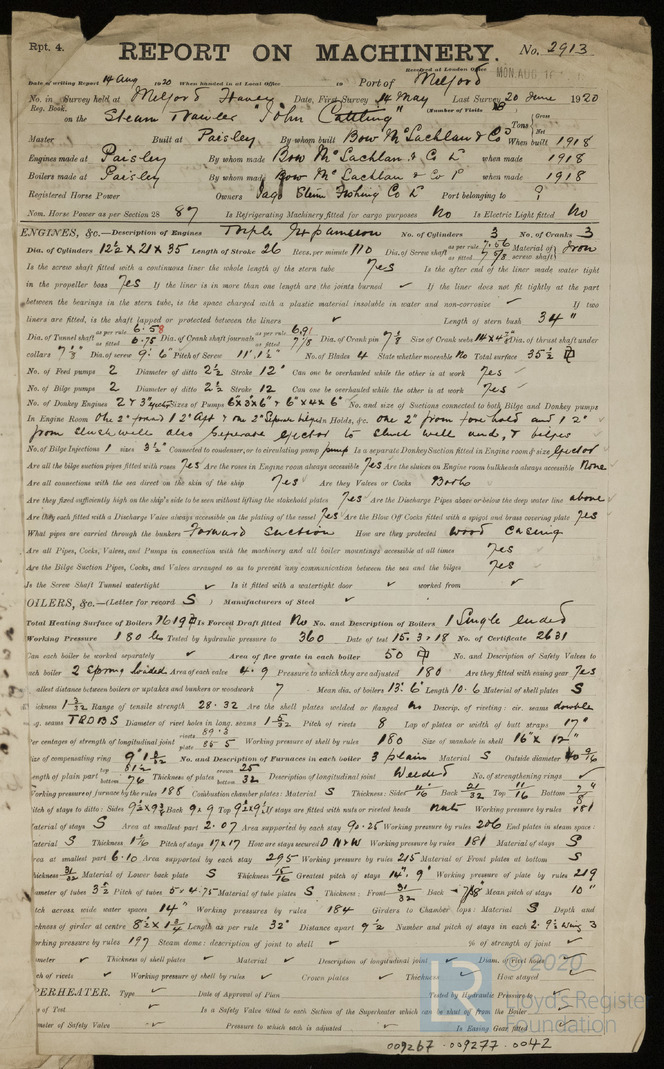 Rpt. 4.
REPORT ON MACHINERY. No. 2913
Received at London Office MON. AUG
Date of writing Report 14 Aug 1920 When handed in at Local Office 19 Port of Milford
No. in Survey held at Milford Haven Date, First Survey 14 May Last Survey 20 June 1920
Reg. Book. (Number of Visits
on the Steam Trawler "John Catling" Tons Gross Net
Master Built at Paisley By whom built Bow McLachlan & Co When built 1918
Engines made at Paisley By whom made Bow McLachlan & Co Ld when made 1918
Boilers made at Paisley By whom made Bow McLachlan & Co when made 1918
Registered Horse Power Owners Steam Fishing Co Ld Port belonging to ?
Nom. Horse Power as per Section 28 87 Is Refrigerating Machinery fitted for cargo purposes No Is Electric Light fitted No
ENGINES, &c.—Description of Engines Triple Expansion No. of Cylinders 3 No. of Cranks 3
Dia. of Cylinders 12½ x 21 x 35 Length of Stroke 26 Revs. per minute 110 Dia. of Screw shaft as per rule 7.56 as fitted 7 5/8 Material of screw shaft Iron
Is the screw shaft fitted with a continuous liner the whole length of the stern tube Yes Is the after end of the liner made water tight
in the propeller boss Yes If the liner is in more than one length are the joints burned ✓ If the liner does not fit tightly at the part
between the bearings in the stern tube, is the space charged with a plastic material insoluble in water and non-corrosive ✓ If two
liners are fitted, is the shaft lapped or protected between the liners ✓ Length of stern bush 34"
Dia. of Tunnel shaft as per rule 6.58 as fitted 6.75 Dia. of Crank shaft journals as per rule 6.91 as fitted 7 1/8 Dia. of Crank pin 7 1/8 Size of Crank webs 14 x 4 7/8 Dia. of thrust shaft under
collars 7 1/8 Dia. of screw 9' 6" Pitch of Screw 11' 1½" No. of Blades 4 State whether moveable No Total surface 35½
No. of Feed pumps 2 Diameter of ditto 2½ Stroke 12" Can one be overhauled while the other is at work Yes
No. of Bilge pumps 2 Diameter of ditto 2½ Stroke 12 Can one be overhauled while the other is at work Yes
No. of Donkey Engines 2 & 3" ejector Sizes of Pumps 6 x 3½ x 6" & 6" x 4 x 6" No. and size of Suctions connected to both Bilge and Donkey pumps
In Engine Room One 2" forward 1 2" Aft & one 2" Separate bilge In Holds, &c. one 2" from fore hold and 1 2"
from slush well also Seperate Ejector to slush well and, & bilges
No. of Bilge Injections 1 sizes 3½" Connected to condenser, or to circulating pump pump Is a separate Donkey Suction fitted in Engine room & size Ejector
Are all the bilge suction pipes fitted with roses Yes Are the roses in Engine room always accessible Yes Are the sluices on Engine room bulkheads always accessible None
Are all connections with the sea direct on the skin of the ship Yes Are they Valves or Cocks Both
Are they fixed sufficiently high on the ship's side to be seen without lifting the stokehold plates Yes Are the Discharge Pipes above or below the deep water line above
Are they each fitted with a Discharge Valve always accessible on the plating of the vessel Yes Are the Blow Off Cocks fitted with a spigot and brass covering plate Yes
What pipes are carried through the bunkers Forward Suction How are they protected Wood Casing
Are all Pipes, Cocks, Valves, and Pumps in connection with the machinery and all boiler mountings accessible at all times Yes
Are the Bilge Suction Pipes, Cocks, and Valves arranged so as to prevent any communication between the sea and the bilges Yes
Is the Screw Shaft Tunnel watertight ✓ Is it fitted with a watertight door ✓ worked from ✓
OILERS, &c.—(Letter for record S ) Manufacturers of Steel ✓
Total Heating Surface of Boilers 1619 Is Forced Draft fitted No No. and Description of Boilers 1 Single ended
Working Pressure 180 lbs Tested by hydraulic pressure to 360 Date of test 15.3.18 No. of Certificate 2631
Can each boiler be worked separately ✓ Area of fire grate in each boiler 50 No. and Description of Safety Valves to
each boiler 2 Spring loaded Area of each valve 4.9 Pressure to which they are adjusted 180 Are they fitted with easing gear Yes
allest distance between boilers or uptakes and bunkers or woodwork 7 Mean dia. of boilers 13' 6" Length 10.6 Material of shell plates S
ickness 1 3/32 Range of tensile strength 28.32 Are the shell plates welded or flanged No Descrip. of riveting: cir. seams double
g. seams TRDBS Diameter of rivet holes in long. seams 1 5/32 Pitch of rivets 8 Lap of plates or width of butt straps 17"
er centages of strength of longitudinal joint rivets 89.3 plate 85.5 Working pressure of shell by rules 180 Size of manhole in shell 16" x 12"
ize of compensating ring 9" 1 3/32 No. and Description of Furnaces in each boiler 3 plain Material S Outside diameter 40 9/16
ength of plain part top bottom 76 Thickness of plates crown 25/32 bottom Description of longitudinal joint Welded No. of strengthening rings ✓
Working pressure of furnace by the rules 188 Combustion chamber plates: Material S Thickness: Sides 11/16 Back 21/32 Top 11/16 Bottom 7/8
itch of stays to ditto: Sides 9½ x 9¾ Back 9 x 9 Top 9½ x 9½ If stays are fitted with nuts or riveted heads Nuts Working pressure by rules 181
aterial of stays S Area at smallest part 2.07 Area supported by each stay 90.25 Working pressure by rules 206 End plates in steam space:
aterial S Thickness 1 1/16 Pitch of stays 17 x 17 How are stays secured D N & W Working pressure by rules 181 Material of stays S
rea at smallest part 6.10 Area supported by each stay 295 Working pressure by rules 215 Material of Front plates at bottom S
hickness 31/32 Material of Lower back plate S Thickness 15/16 Greatest pitch of stays 14" . 9" Working pressure of plate by rules 219
iameter of tubes 3½ Pitch of tubes 5 x 4.75 Material of tube plates S Thickness: Front 31/32 Back 7/8" Mean pitch of stays 10"
tch across wide water spaces 14" Working pressures by rules 184 Girders to Chamber tops: Material S Depth and
ckness of girder at centre 8½ x 1¾ Length as per rule 32" Distance apart 9½ Number and pitch of stays in each 2. 9½ Wing 3
orking pressure by rules 197 Steam dome: description of joint to shell ✓ % of strength of joint ✓
ameter ✓ Thickness of shell plates ✓ Material ✓ Description of longitudinal joint ✓ Diam. of rivet holes ✓
ch of rivets ✓ Working pressure of shell by rules ✓ Crown plates ✓ Thickness ✓ How stayed ✓
PERHEATER. Type ✓ Date of Approval of Plan Tested by Hydraulic Pressure to ✓
e of Test ✓ Is a Safety Valve fitted to each Section of the Superheater which can be shut off from the Boiler
meter of Safety Valve ✓ Pressure to which each is adjusted ✓ Is Easing Gear fitted ✓
LR © 2020
Lloyd's Register
Foundation
009267-009277-0042